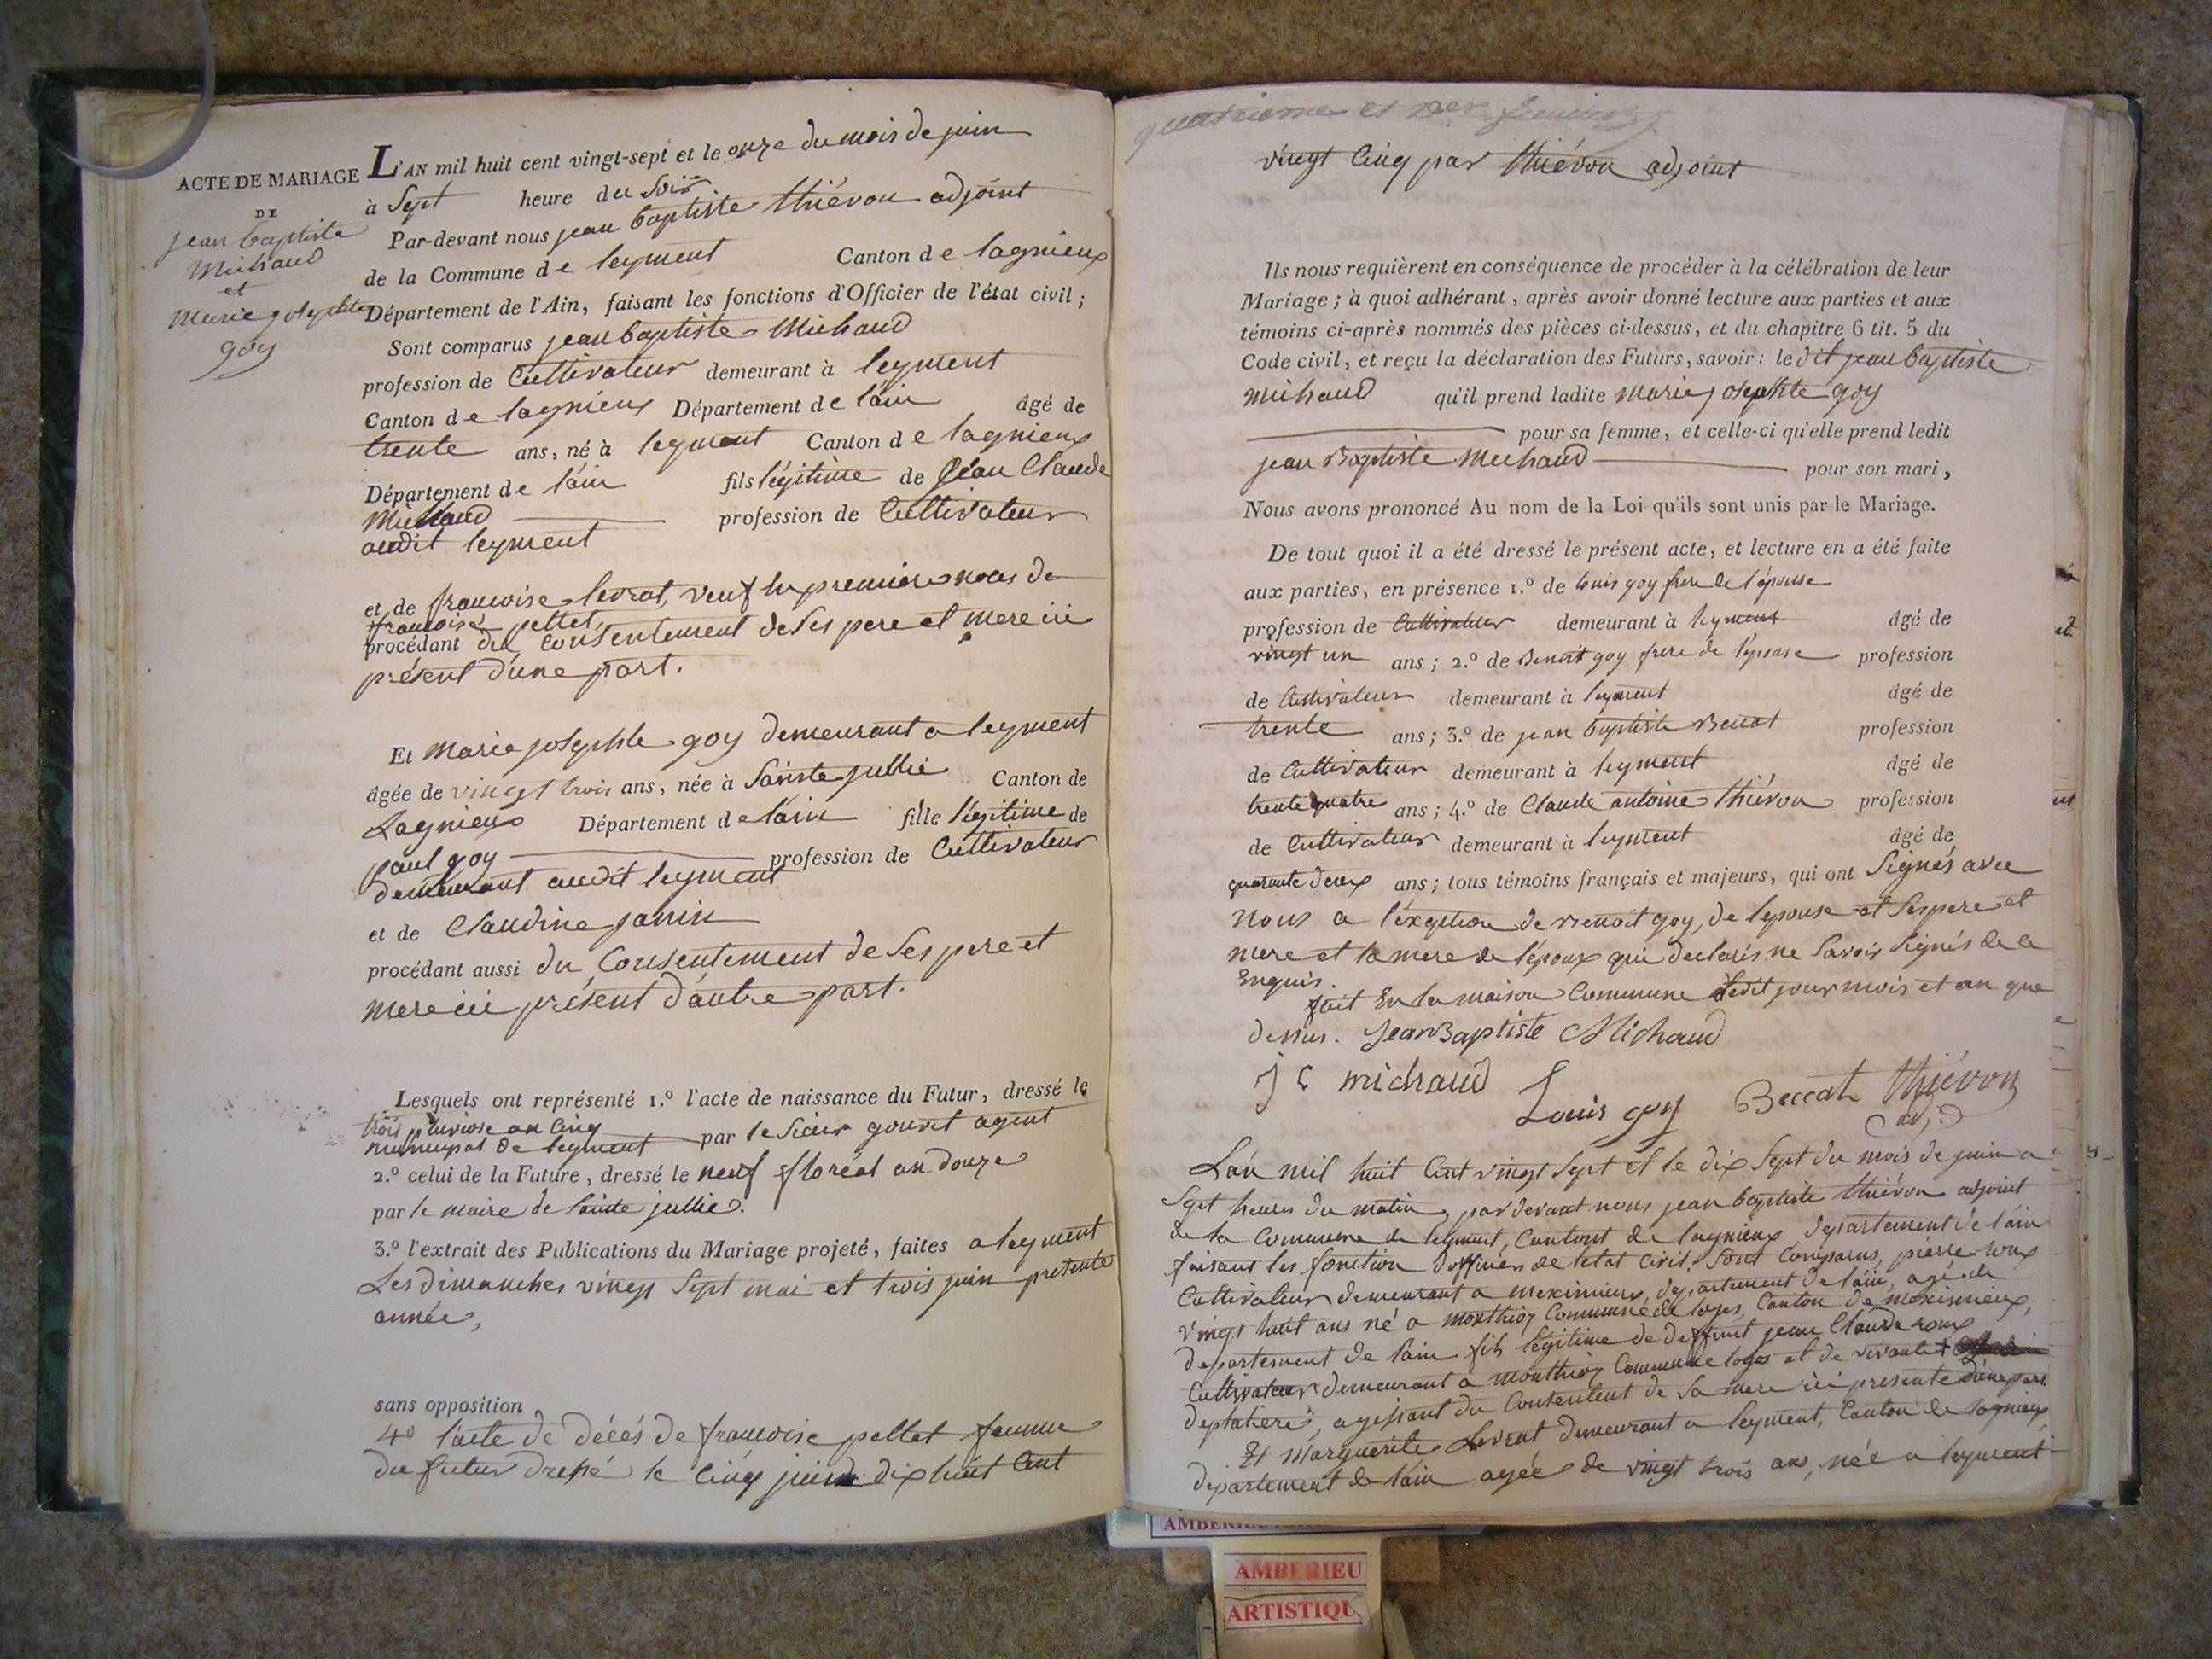 ACTE DE MARIAGE
DE
jean baptiste
Michaud
et
Marie josephte
goy
L'AN mil huit cent vingt-sept et le onze du mois de juin
à Sept heure du Soir
Par-devant nous jean baptiste thiévon adjoint
de la Commune de leyment Canton de lagnieux
Département de l'Ain, faisant les fonctions d'Officier de l'état civil;
Sont comparus jean baptiste Michaud
profession de Cultivateur demeurant à leyment
Canton de lagnieux Département de l'ain âgé de
trente ans, né à leyment Canton de lagnieux
Département de l'ain fils légitime de Jean Claude
Michaud profession de Cultivateur
audit leyment
et de francoise levrat, veuf en premiere noces de
francoise pellet,
procédant du Consentement de Ses pere et mere ici
présent d'une part.
Et Marie josephte goy demeurant a leyment
âgée de vingt trois ans, née à Sainte jullie Canton de
Lagnieux Département de l'ain fille légitime de
paul goy profession de Cultivateur
demeurant audit leyment
et de Claudine janin
procédant aussi du Consentement de Ses pere et
mere ici présent d'autre part.
Lesquels ont représenté 1.º l'acte de naissance du Futur, dressé le
trois pluviose an Cinq
municipal de leyment par le Sieur gouvet agent
2.º celui de la Future, dressé le neuf floréal an douze
par le maire de Sainte jullie.
3.º l'extrait des Publications du Mariage projeté, faites a leyment
Les dimanches vingt Sept mai et trois juin présente
année,
sans opposition
4º l'acte de décés de francoise pellet femme
du futur dressé le Cinq juin dix huit Cent
vingt Cinq par thiévon adjoint
Ils nous requièrent en conséquence de procéder à la célébration de leur
Mariage; à quoi adhérant, après avoir donné lecture aux parties et aux
témoins ci-après nommés des pièces ci-dessus, et du chapitre 6 tit. 5 du
Code civil, et reçu la déclaration des Futurs, savoir: le dit jean baptiste
michaud qu'il prend ladite marie josephte goy
pour sa femme, et celle-ci qu'elle prend ledit
jean Baptiste Michaud pour son mari,
Nous avons prononcé Au nom de la Loi qu'ils sont unis par le Mariage.
De tout quoi il a été dressé le présent acte, et lecture en a été faite
aux parties, en présence 1.º de louis goy frere de l'épouse
profession de Cultivateur demeurant à leyment âgé de
vingt un ans; 2.º de Benoit goy frere de l'épouse profession
de Cultivateur demeurant à leyment âgé de
trente ans; 3.º de jean baptiste profession
de Cultivateur demeurant à leyment âgé de
trente quatre ans; 4.º de Claude antoine thiévon profession
de Cultivateur demeurant à leyment âgé de
quarante deux ans; tous témoins français et majeurs, qui ont Signés avec
nous a l'exeption de Benoit goy, de lepouse et Ses pere et
mere et la mere de l'époux qui declarés ne Savoir Signés de ce
Enquis.
fait En la maison Commune ledit jour mois et an que
dessus. Jean Baptiste Michaud
J C michaud
Louis goy Beccat thiévon
adj.
L'an mil huit Cent vingt Sept et le dix Sept du mois de juin a
Sept heures du matin, par devant nous jean baptiste thiévon adjoint
de la Commune de leyment, Cantont de lagnieux departement de l'ain
faisant les fonction d'officier de letat Civil. Sont Comparus, pierre roux
Cultivateur demeurant a meximieux, departement de l'ain, agé de
vingt huit ans né a monthioz Commune de loyes, Canton de meximieux,
departement de l'ain fils légitime de deffunt jean Claude roux
Cultivateur demeurant a monthioz Commune loyes et de vivante
agissant du Consentent de Sa mere ici presente d'une part
Et Marguerite Levrat demeurant a leyment, Canton de lagnieux
departement de l'ain agée de vingt trois ans, née a leyment
AMBERIEU
ARTISTIQU